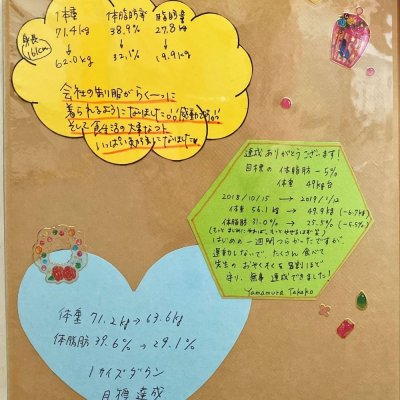 体重 体脂肪率 脂肪量
71.4kg 38.9% 27.8kg
身長161cm
↓ ↓ ↓
62.0kg 32.1% 19.9kg
会社の制服がらく〜っに
着られるようになりました!!感動!!
そして食生活の大事なコト
いっぱい
になりました
達成ありがとうございます!
目標の 体脂肪 -5%
体重 49kg台
2018/10/15 → 2019/1/12
体重 56.1kg → 49.9kg (-6.7kg)
体脂肪 31.0% → 25.5% (-5.5%)
はじめの一週間つらかったですが、
運動しないで、たくさん食べて
先生のおやくそくを
守り、無事 達成できました!
Yamamura Takako
体重 71.2kg → 63.6kg
体脂肪 39.6% → 29.1%
1サイズダウン
目標達成